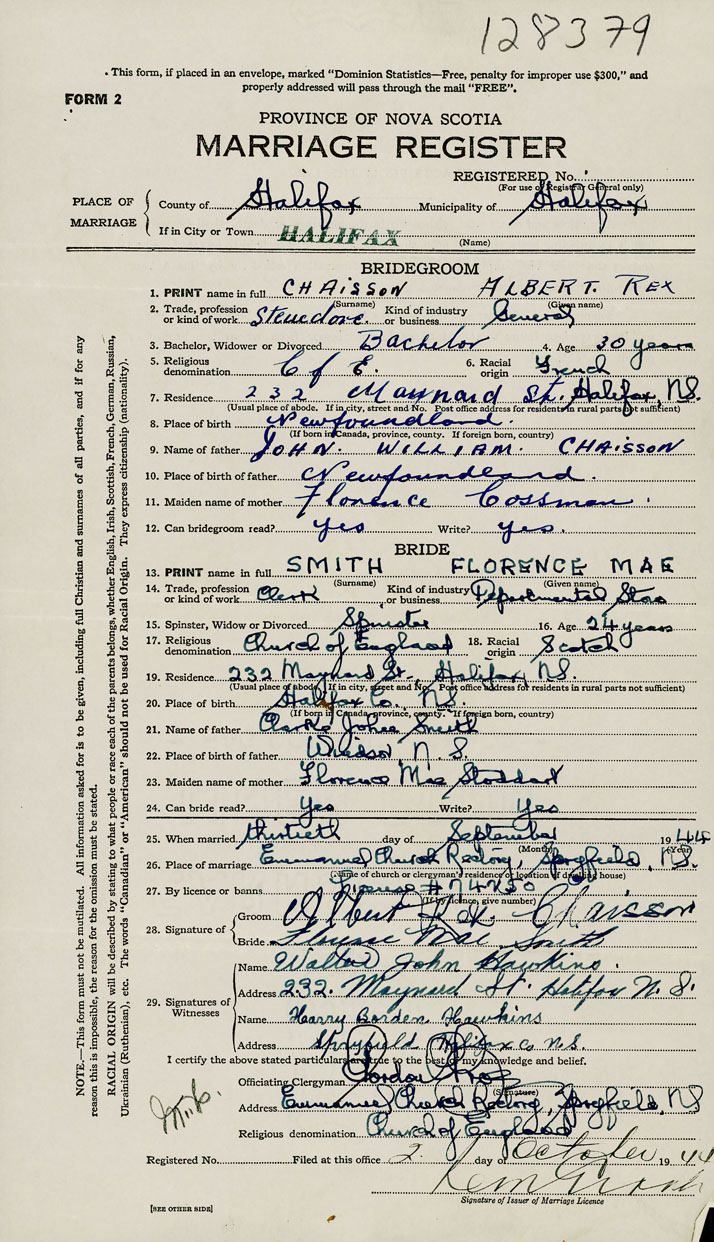 128379
. This form, if placed in an envelope, marked "Dominion Statistics—Free, penalty for improper use $300," and
properly addressed will pass through the mail "FREE".
FORM 2
PROVINCE OF NOVA SCOTIA
MARRIAGE REGISTER
REGISTERED No.
(For use of Registrar General only)
PLACE OF MARRIAGE
County of Halifax Municipality of Halifax
If in City or Town HALIFAX
(Name)
BRIDEGROOM
1. PRINT name in full CHAISSON ALBERT. REX
(Surname) (Given name)
2. Trade, profession or kind of work Stevedore. Kind of industry or business General
3. Bachelor, Widower or Divorced Bachelor 4. Age 30 years
5. Religious denomination C of E. 6. Racial origin French
7. Residence 232 Maynard St, Halifax, N.S.
(Usual place of abode. If in city, street and No. Post office address for residents in rural parts not sufficient)
8. Place of birth Newfoundland.
(If born in Canada, province, county. If foreign born, country)
9. Name of father JOHN. WILLIAM. CHAISSON
10. Place of birth of father Newfoundland.
11. Maiden name of mother Florence Cossman.
12. Can bridegroom read? yes Write? yes.
BRIDE
13. PRINT name in full SMITH FLORENCE MAE
(Surname) (Given name)
14. Trade, profession or kind of work Clerk Kind of industry or business Departmental Store
15. Spinster, Widow or Divorced Spinster 16. Age 24 years
17. Religious denomination Church of England 18. Racial origin Scotch
19. Residence 232 Maynard St., Halifax, N.S.
(Usual place of abode. If in city, street and No. Post office address for residents in rural parts not sufficient)
20. Place of birth Halifax Co., N.S.
(If born in Canada, province, county. If foreign born, country)
21. Name of father Clarke John Smith
22. Place of birth of father Windsor N.S.
23. Maiden name of mother Florence Mae Stoddart
24. Can bride read? Yes Write? Yes
25. When married thirtieth day of September 1944
(Month) (Year)
26. Place of marriage Emmanuel Church Rectory, Spryfield, N.S.
(Name of church or clergyman's residence or location of dwelling house)
27. By licence or banns License # 74750
(If by licence, give number)
28. Signature of
Groom Albert Rex Chaisson
Bride Florence Mae Smith
29. Signatures of Witnesses
Name Walter John Hawkins.
Address 232. Maynard St. Halifax N.S.
Name Harry Borden Hawkins
Address Spryfield Halifax Co N.S.
I certify the above stated particulars are true to the best of my knowledge and belief.
Officiating Clergyman Gordon
(Signature)
Address Emmanuel Church Rectory, Spryfield, N.S
Religious denomination Church of England
Registered No. Filed at this office 2 day of October 1944
Signature of Issuer of Marriage Licence
[SEE OTHER SIDE]
NOTE.—This form must not be mutilated. All information asked for is to be given, including full Christian and surnames of all parties, and if for any
reason this is impossible, the reason for the omission must be stated.
RACIAL ORIGIN will be described by stating to what people or race each of the parents belongs, whether English, Irish, Scottish, French, German, Russian,
Ukrainian (Ruthenian), etc. The words "Canadian" or "American" should not be used for Racial Origin. They express citizenship (nationality).